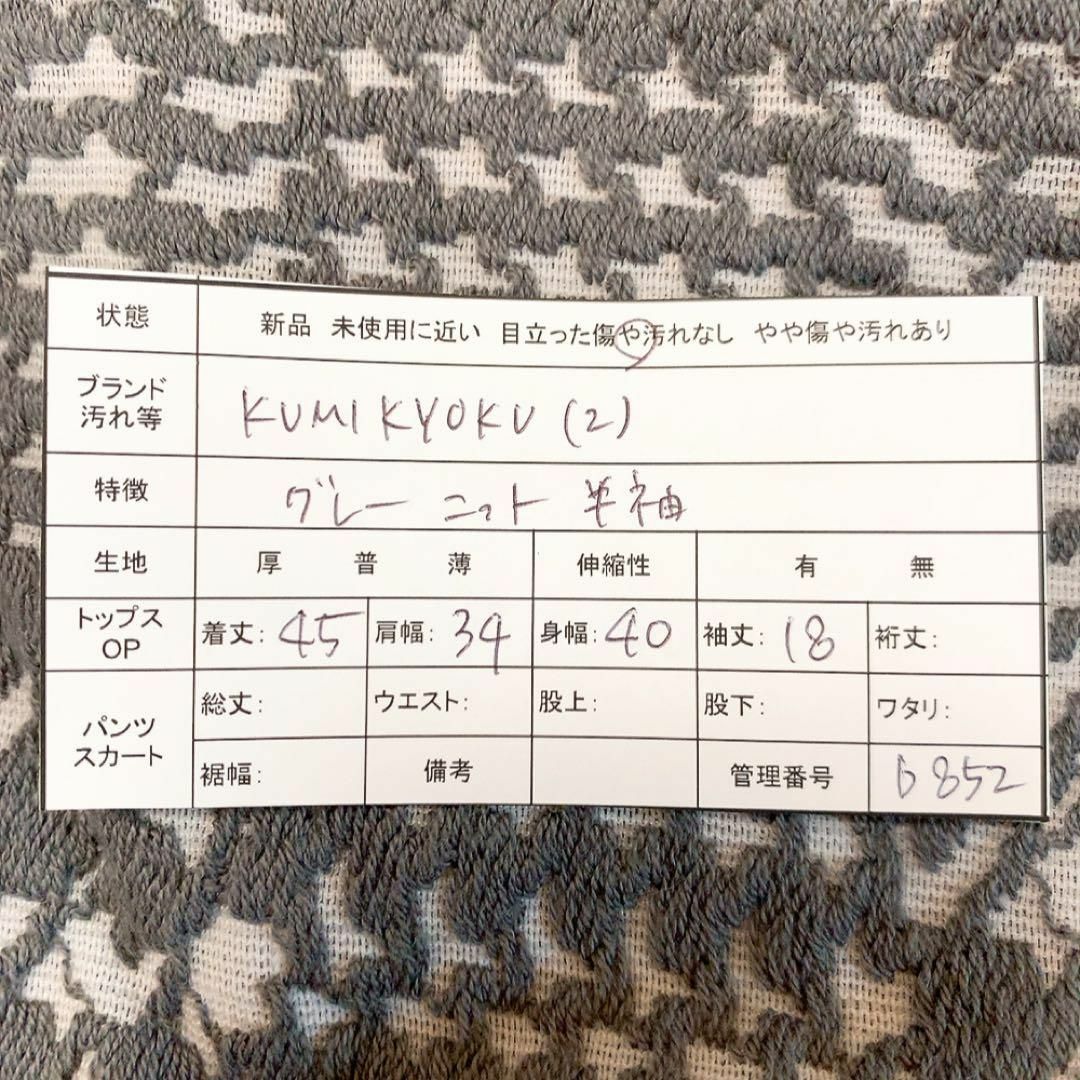 状態 新品 未使用に近い 目立った傷や汚れなし やや傷や汚れあり
ブランド
汚れ等
KUMIKYOKU (2)
特徴 グレー ニット 半袖
生地 厚 普 薄 伸縮性 有 無
トップス
OP
着丈: 45 肩幅: 34 身幅: 40 袖丈: 18 裄丈:
パンツ
スカート
総丈: ウエスト: 股上: 股下: ワタリ:
裾幅: 備考 管理番号 b852